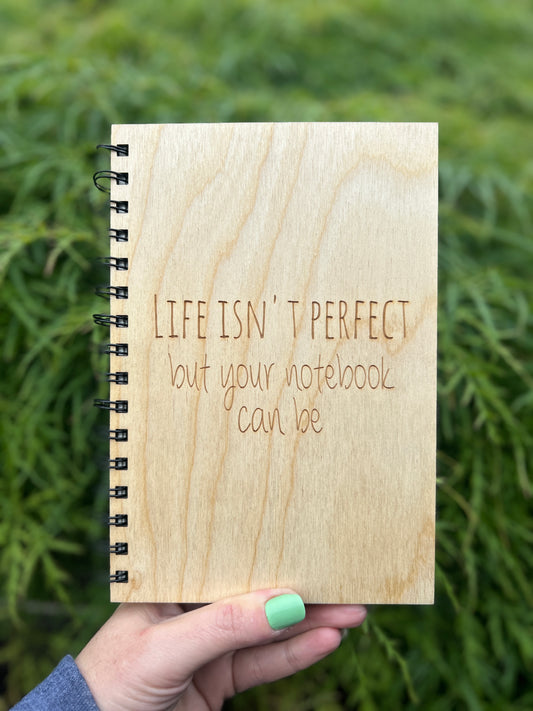 LIFE ISN'T PERFECT
but your notebook
can be